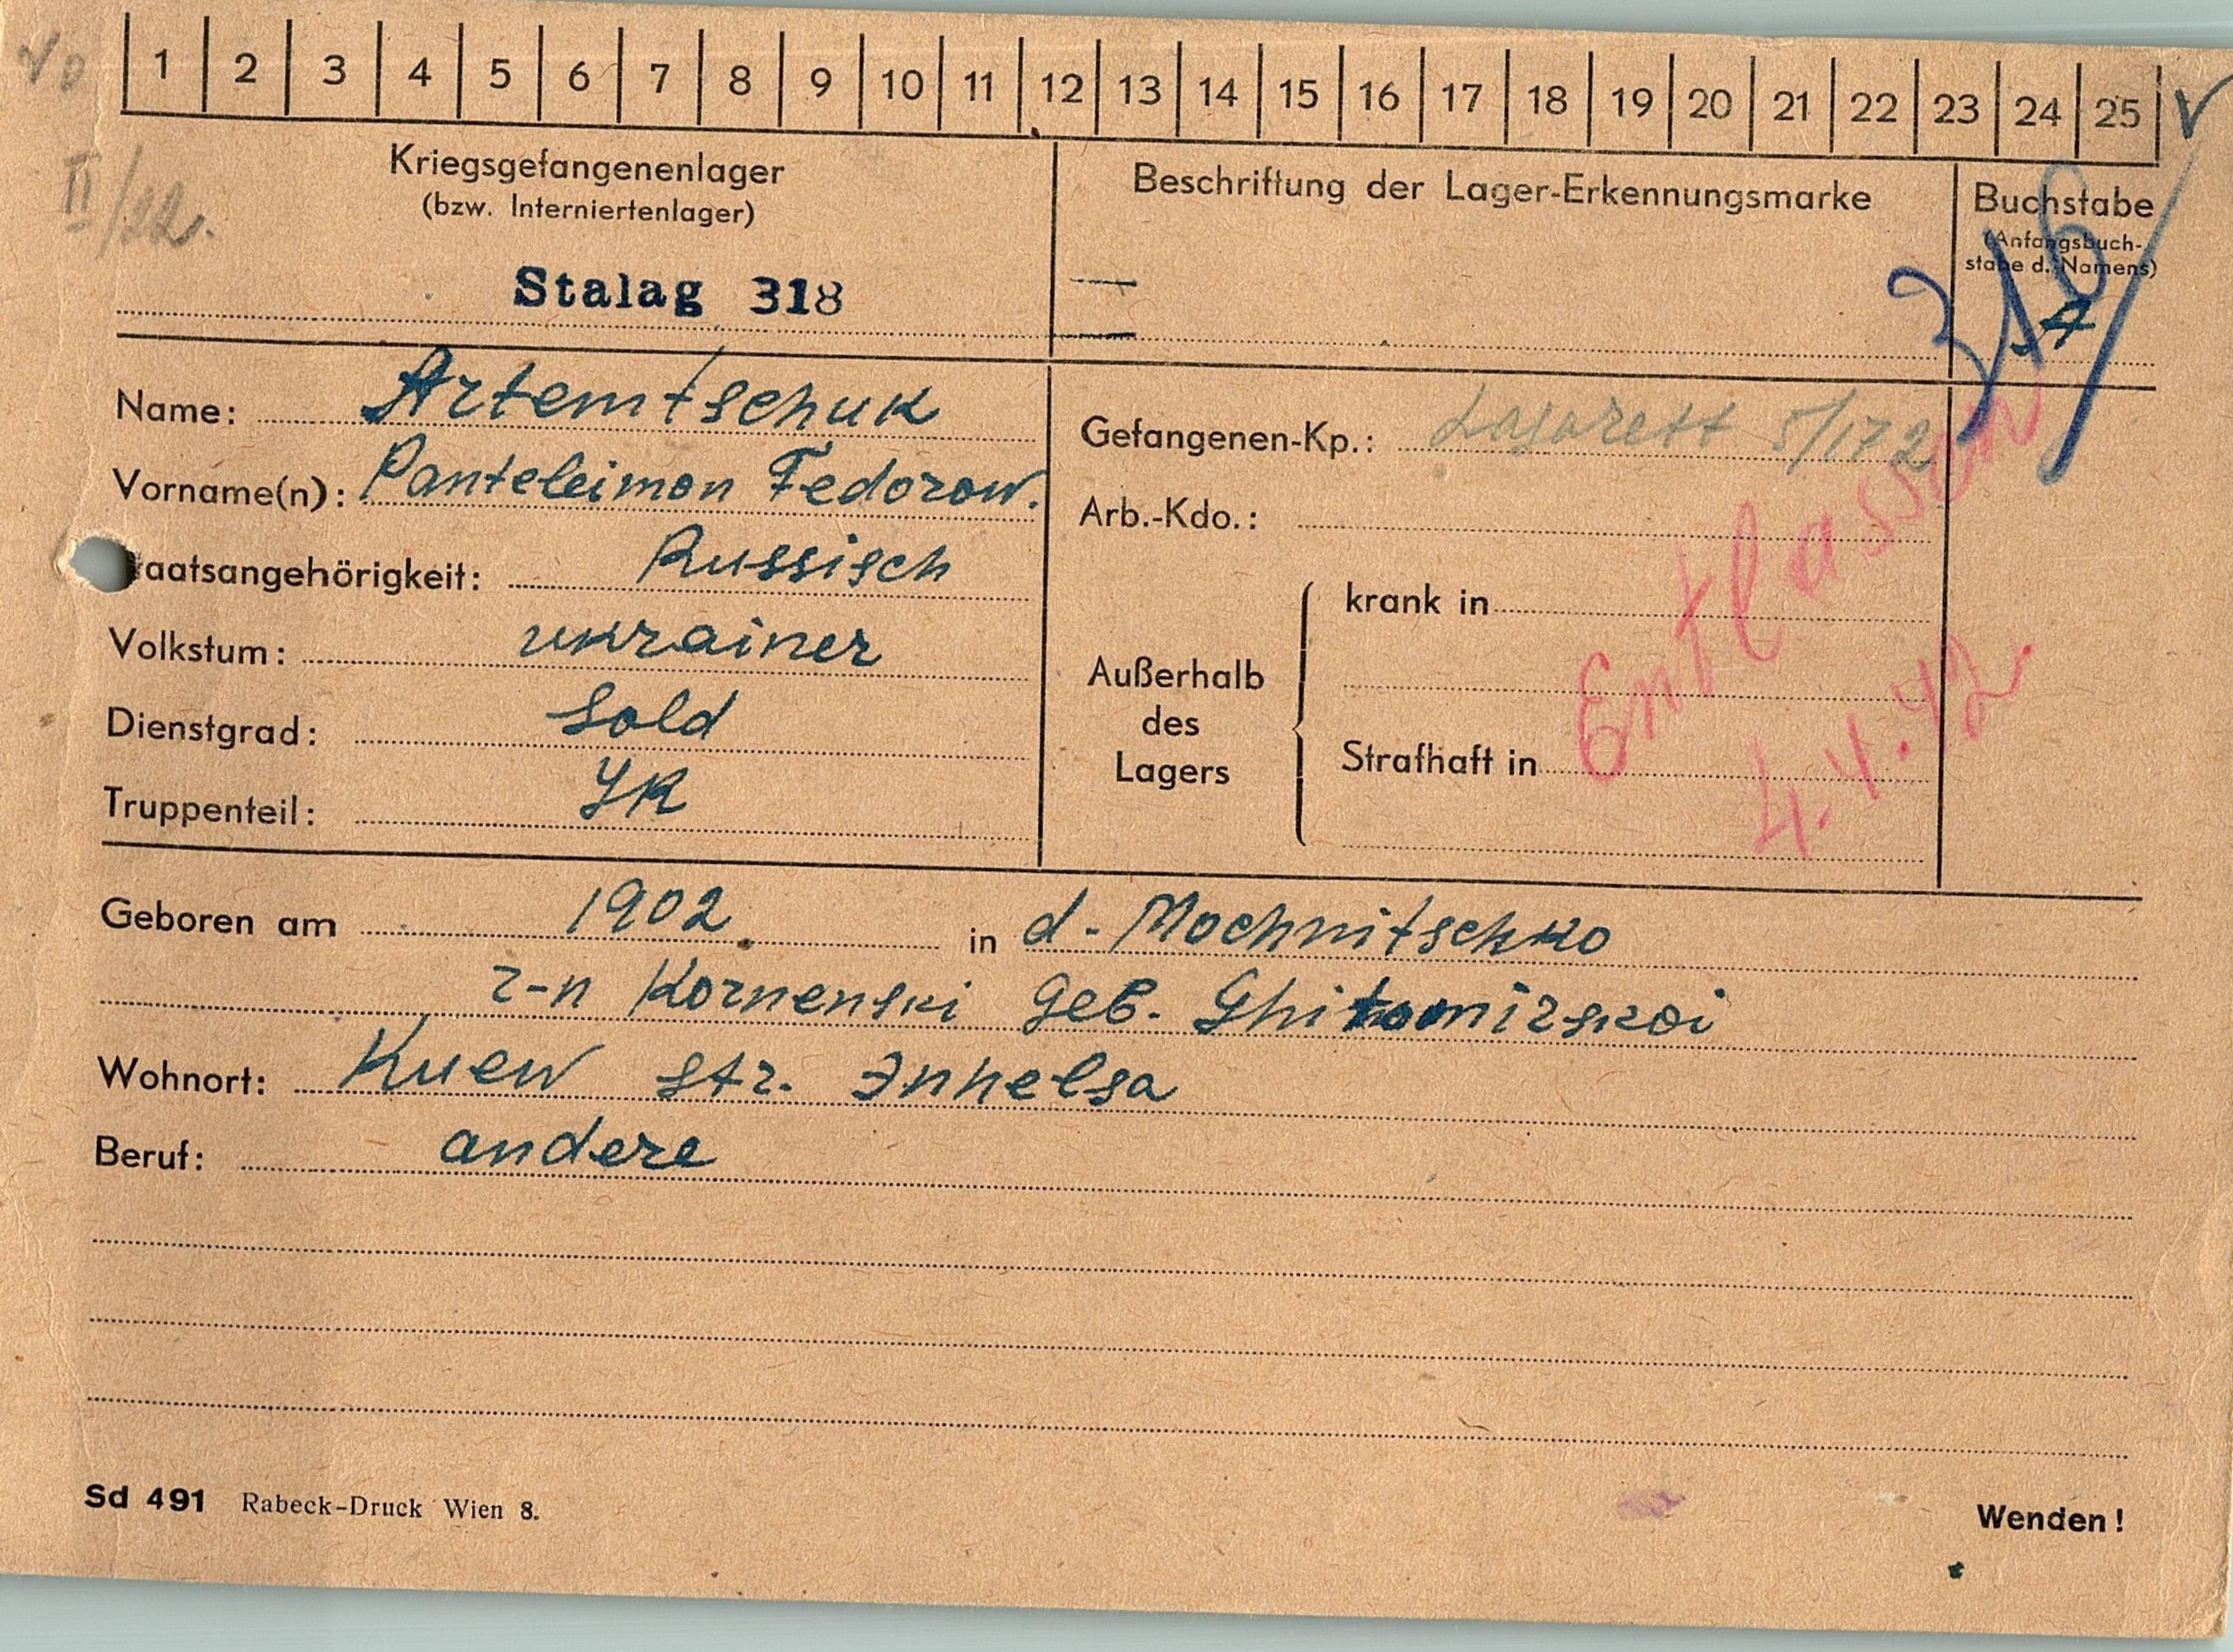 1 2 3 4 5 6 7 8 9 10 11 12 13 14 15 16 17 18 19 20 21 22 23 24 25
II/22.
Kriegsgefangenenlager
(bzw. Interniertenlager)
Stalag 318
Beschriftung der Lager-Erkennungsmarke
Buchstabe
(Anfangsbuch-
stabe d. Namens)
A
316
Name: Artemtschuk
Vorname(n): Panteleimon Fedorow.
taatsangehörigkeit: Russisch
Volkstum: ukrainer
Dienstgrad: Sold
Truppenteil: JR
Gefangenen-Kp.: Lazarett 5/172
Arb.-Kdo.:
Außerhalb
des
Lagers
krank in
Strafhaft in
Entlassen
4.4.42.
Geboren am 1902. in d. Mochnitschko
r-n Kornenski Geb. Ghitomirskoi
Wohnort: Kuew Str. Inhelsa
Beruf: andere
Sd 491 Rabeck-Druck Wien 8.
Wenden!